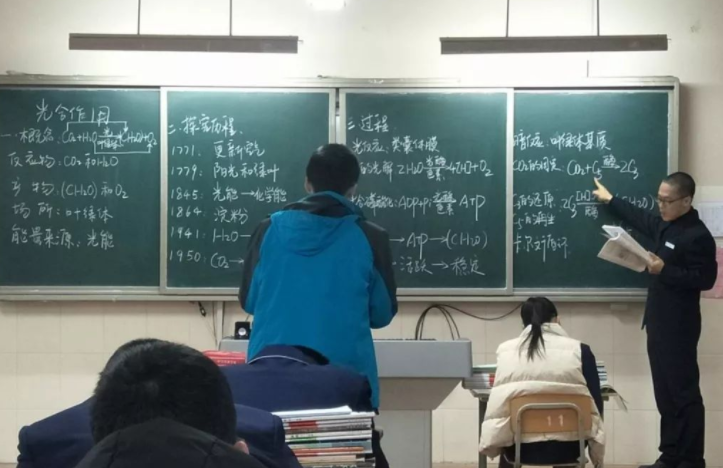 光合作用
一.概念: CO₂+H₂O (CH₂O)+O₂
反应物: CO₂和H₂O
产物: (CH₂O)和O₂
场所: 叶绿体
能量来源: 光能
二.探究历程
1771. 更新空气
1779. 阳光和绿叶
1845: 光能→化学能
1864: 淀粉
1941: H₂O
1950: CO₂
三.过程
光反应: 类囊体膜
的光解: 2H₂O 光能 色素 4[H]+O₂
ADP+Pi ATP
→ATP→(CH₂O)
活跃→稳定
暗反应: 叶绿体基质
CO₂的固定: CO₂+C₅ 酶 2C₃
的还原: 2C₃ [H] (CH₂O)
11